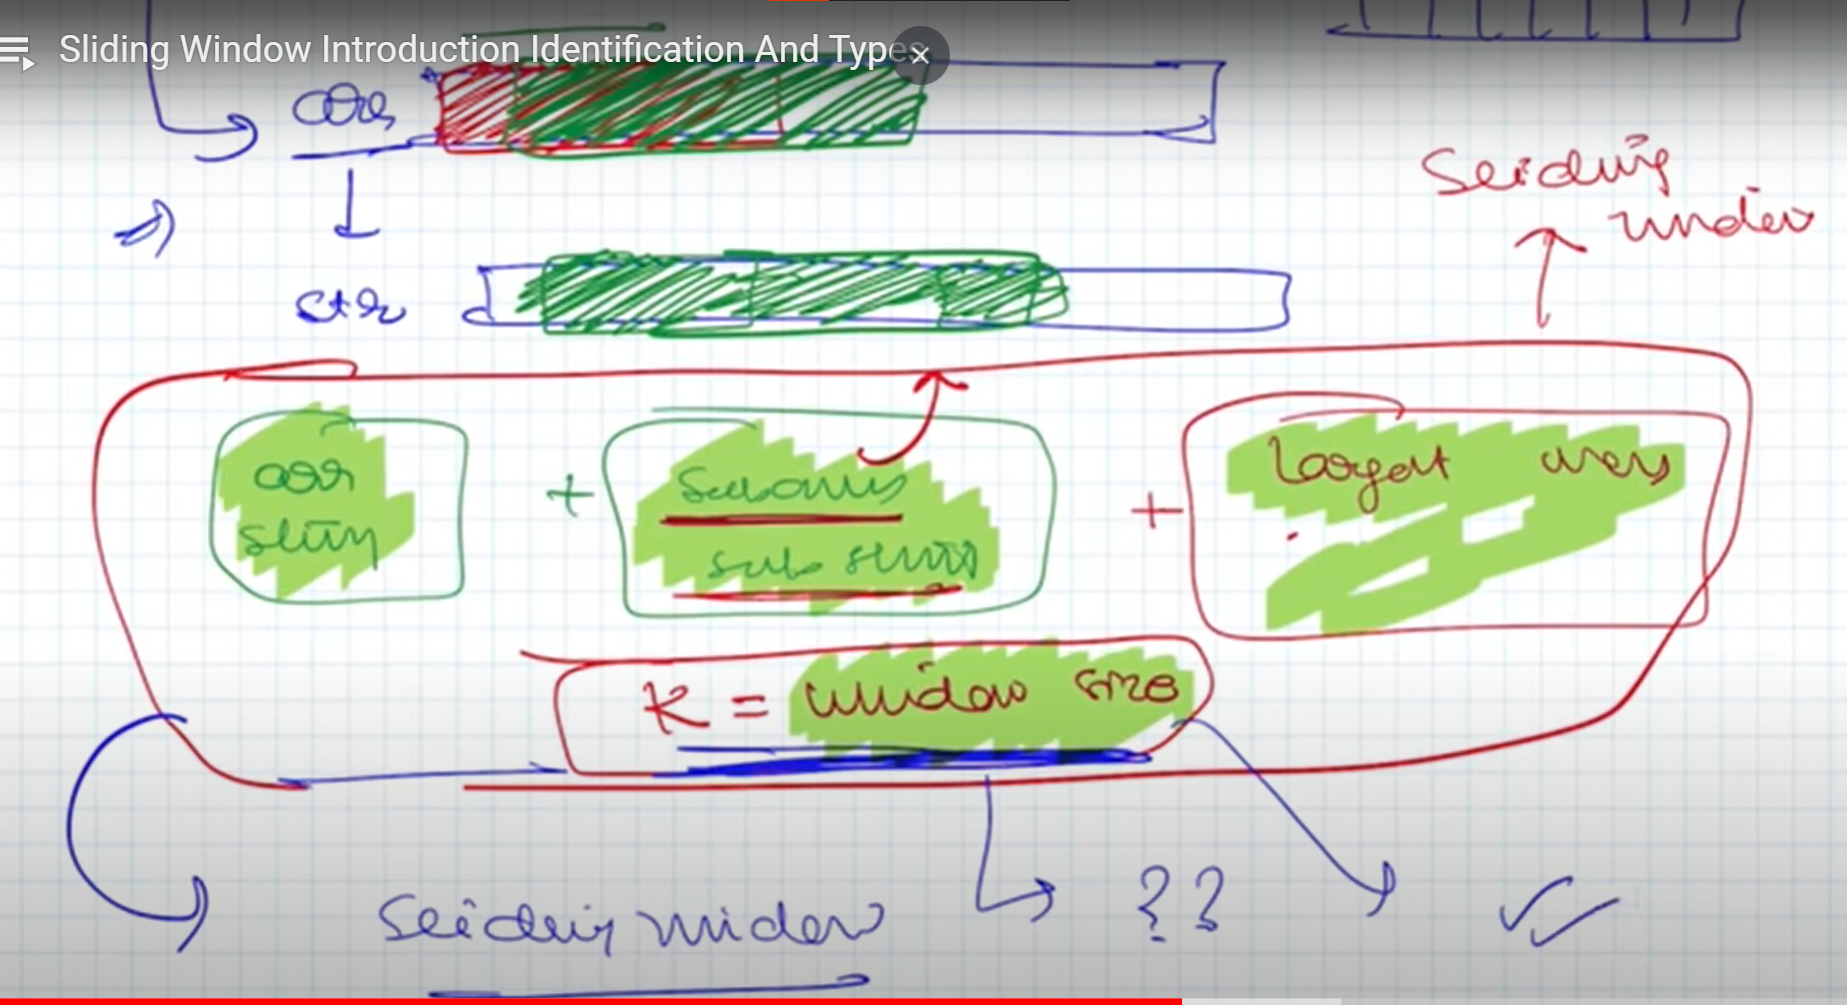 Sliding Window Introduction Identification And Types
arr
Sliding
window
str
arr
string
+
Subarray
sub string
+
Largest
K = window size
??
Sliding window